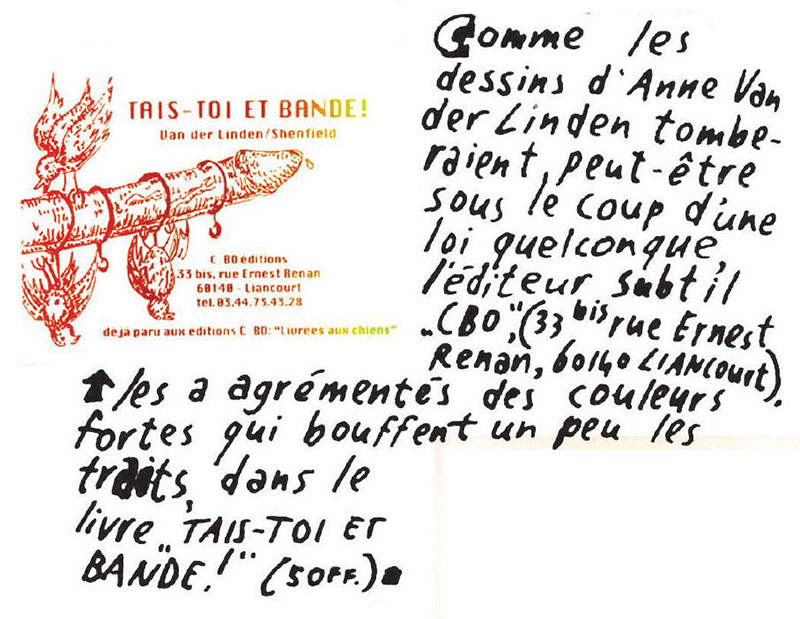 TAIS-TOI ET BANDE!
Van der Linden/Shenfield
C BO éditions
33 bis, rue Ernest Renan
60140 - Liancourt
tel. 03.44.73.43.28
déja paru aux editions C BO: "Livrées aux chiens"
Comme les
dessins d'Anne Van
der Linden tombe-
raient, peut-être
sous le coup d'une
loi quelconque,
l'éditeur subtil
"CBO", (33 bis rue Ernest
Renan, 60140 LIANCOURT).
les a agrémentés des couleurs
fortes qui bouffent un peu les
traits, dans le
livre "TAIS-TOI ET
BANDE!" (50FF.)